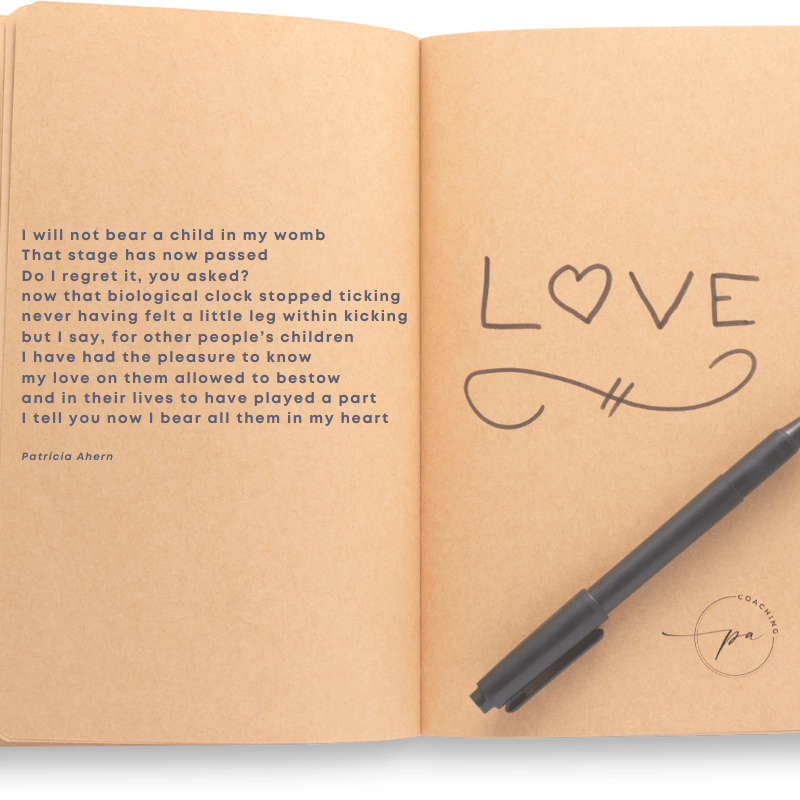 I will not bear a child in my womb
That stage has now passed
Do I regret it, you asked?
now that biological clock stopped ticking
never having felt a little leg within kicking
but I say, for other people's children
I have had the pleasure to know
my love on them allowed to bestow
and in their lives to have played a part
I tell you now I bear all them in my heart
Patricia Ahern
LOVE
COACHING
pa